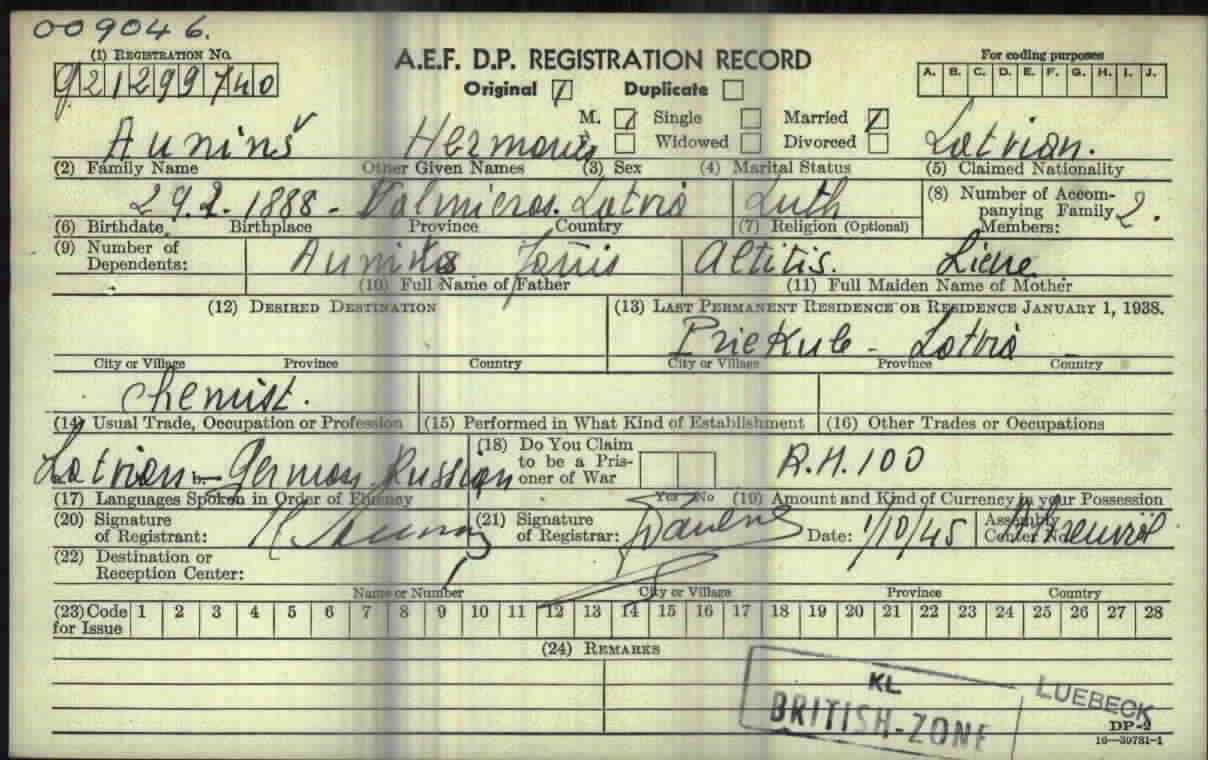 009046.
(1) REGISTRATION NO.
A.E.F. D.P. REGISTRATION RECORD
For coding purposes
G21299740
Original Duplicate
A. B. C. D. E. F. G. H. I. J.
M. Single Married
Auninš Hermanis Latvian.
Widowed Divorced
(2) Family Name Other Given Names (3) Sex (4) Marital Status (5) Claimed Nationality
29.2.1888 - Valmieras. Latvia Luth
(8) Number of Accompanying Family Members: 2.
(6) Birthdate Birthplace Province Country (7) Religion (Optional)
(9) Number of Dependents:
Jānis Liene
(10) Full Name of Father (11) Full Maiden Name of Mother
(12) DESIRED DESTINATION (13) LAST PERMANENT RESIDENCE OR RESIDENCE JANUARY 1, 1938.
Priekule - Latvia
City or Village Province Country City or Village Province Country
Chemist.
(14) Usual Trade, Occupation or Profession (15) Performed in What Kind of Establishment (16) Other Trades or Occupations
Latvian German Russian
(18) Do You Claim to be a Prisoner of War
R.M.100
(17) Languages Spoken in Order of Fluency Yes No (19) Amount and Kind of Currency in your Possession
(20) Signature of Registrant:
(21) Signature of Registrar:
Date: 1/10/45
Assembly Center No.
(22) Destination or Reception Center:
Name or Number City or Village Province Country
(23) Code for Issue 1 2 3 4 5 6 7 8 9 10 11 12 13 14 15 16 17 18 19 20 21 22 23 24 25 26 27 28
(24) REMARKS
KL
BRITISH-ZONE
LUEBECK
DP-2
16—39781-1